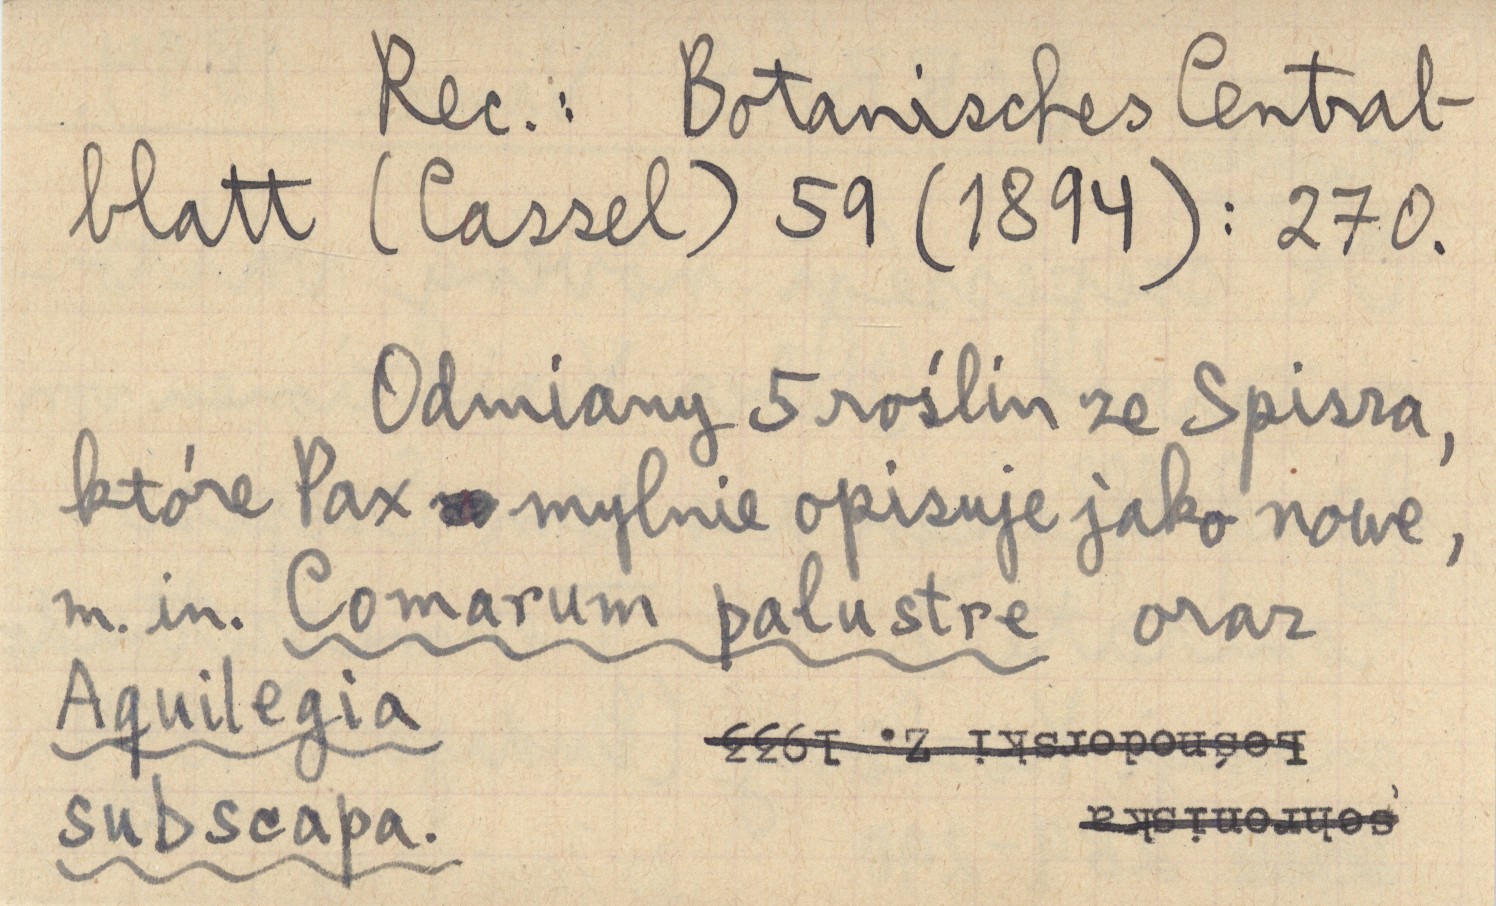 Rec.: Botanisches Central-
blatt (Cassel) 59 (1894): 270.
Odmiany 5 roślin ze Spisza,
które Pax mylnie opisuje jako nowe,
m. in. Comarum palustre oraz
Aquilegia
subscapa.
Leśnodorski Z. 1933
schroniska